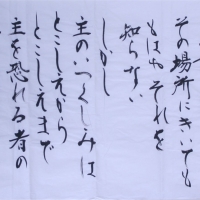 その場所にきいても
もはやそれを
知らない
しかし
主のいつくしみは
とこしえから
とこしえまで
主を恐れる者の